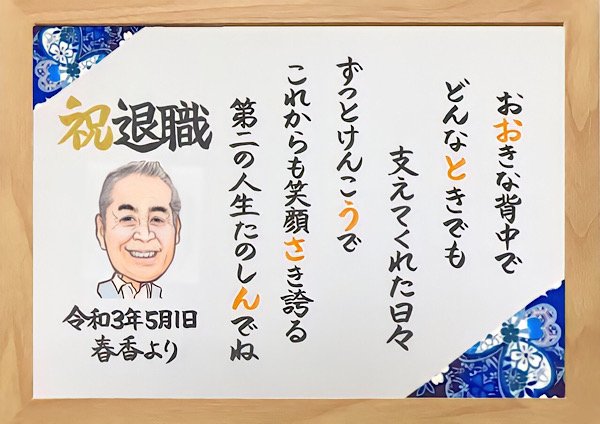 おおきな背中で
どんなときでも
支えてくれた日々
ずっとけんこうで
これからも笑顔さき誇る
第二の人生たのしんでね
祝退職
令和3年5月1日
春香より